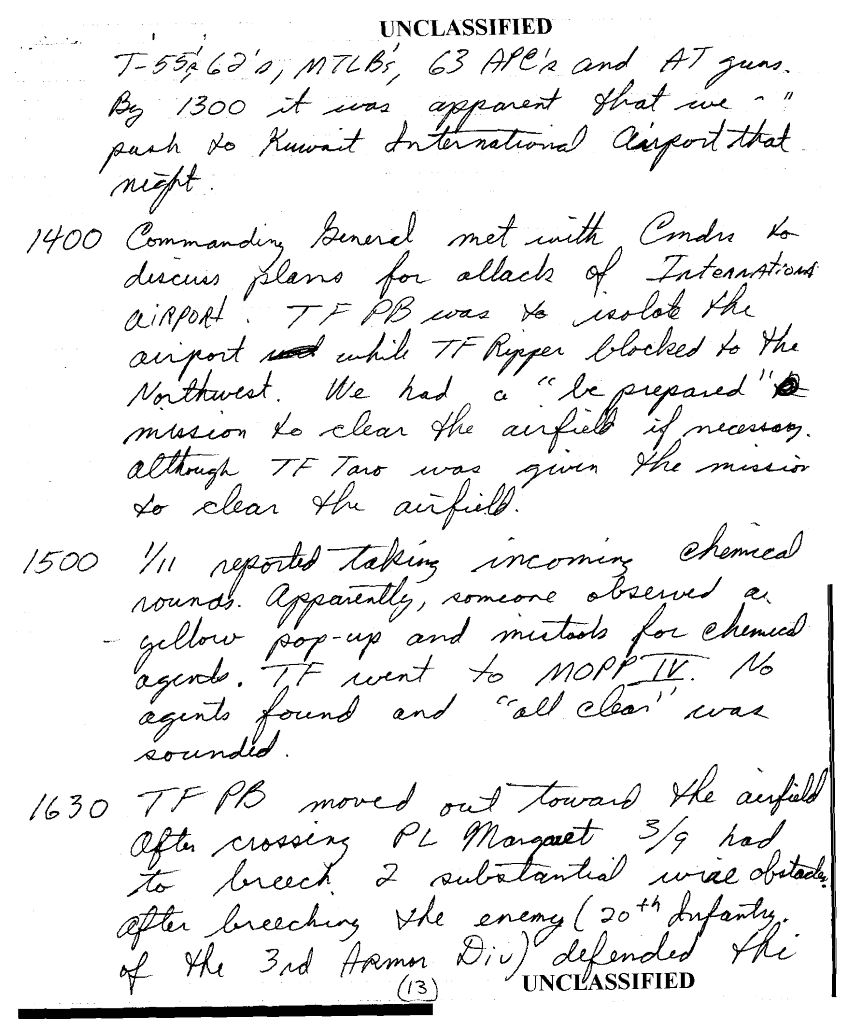 UNCLASSIFIED
T-55's, 62's, MTLB's, 63 APC's and AT guns.
By 1300 it was apparent that we
push to Kuwait International Airport that
night.
1400 Commanding General met with Cmdrs to
discuss plans for attack of International
AIRPORT. TF PB was to isolate the
airport while TF Ripper blocked to the
Northwest. We had a "be prepared"
mission to clear the airfield if necessary.
although TF Taro was given the mission
to clear the airfield.
1500 1/11 reported taking incoming chemical
rounds. Apparently, someone observed a
yellow pop-up and mistook for chemical
agents. TF went to MOPP IV. No
agents found and "all clear" was
sounded.
1630 TF PB moved out toward the airfield
After crossing PL Margaret 3/9 had
to breech 2 substantial wire obstacles.
After breeching the enemy (20th Infantry
of the 3rd Armor Div) defended the
(13) UNCLASSIFIED